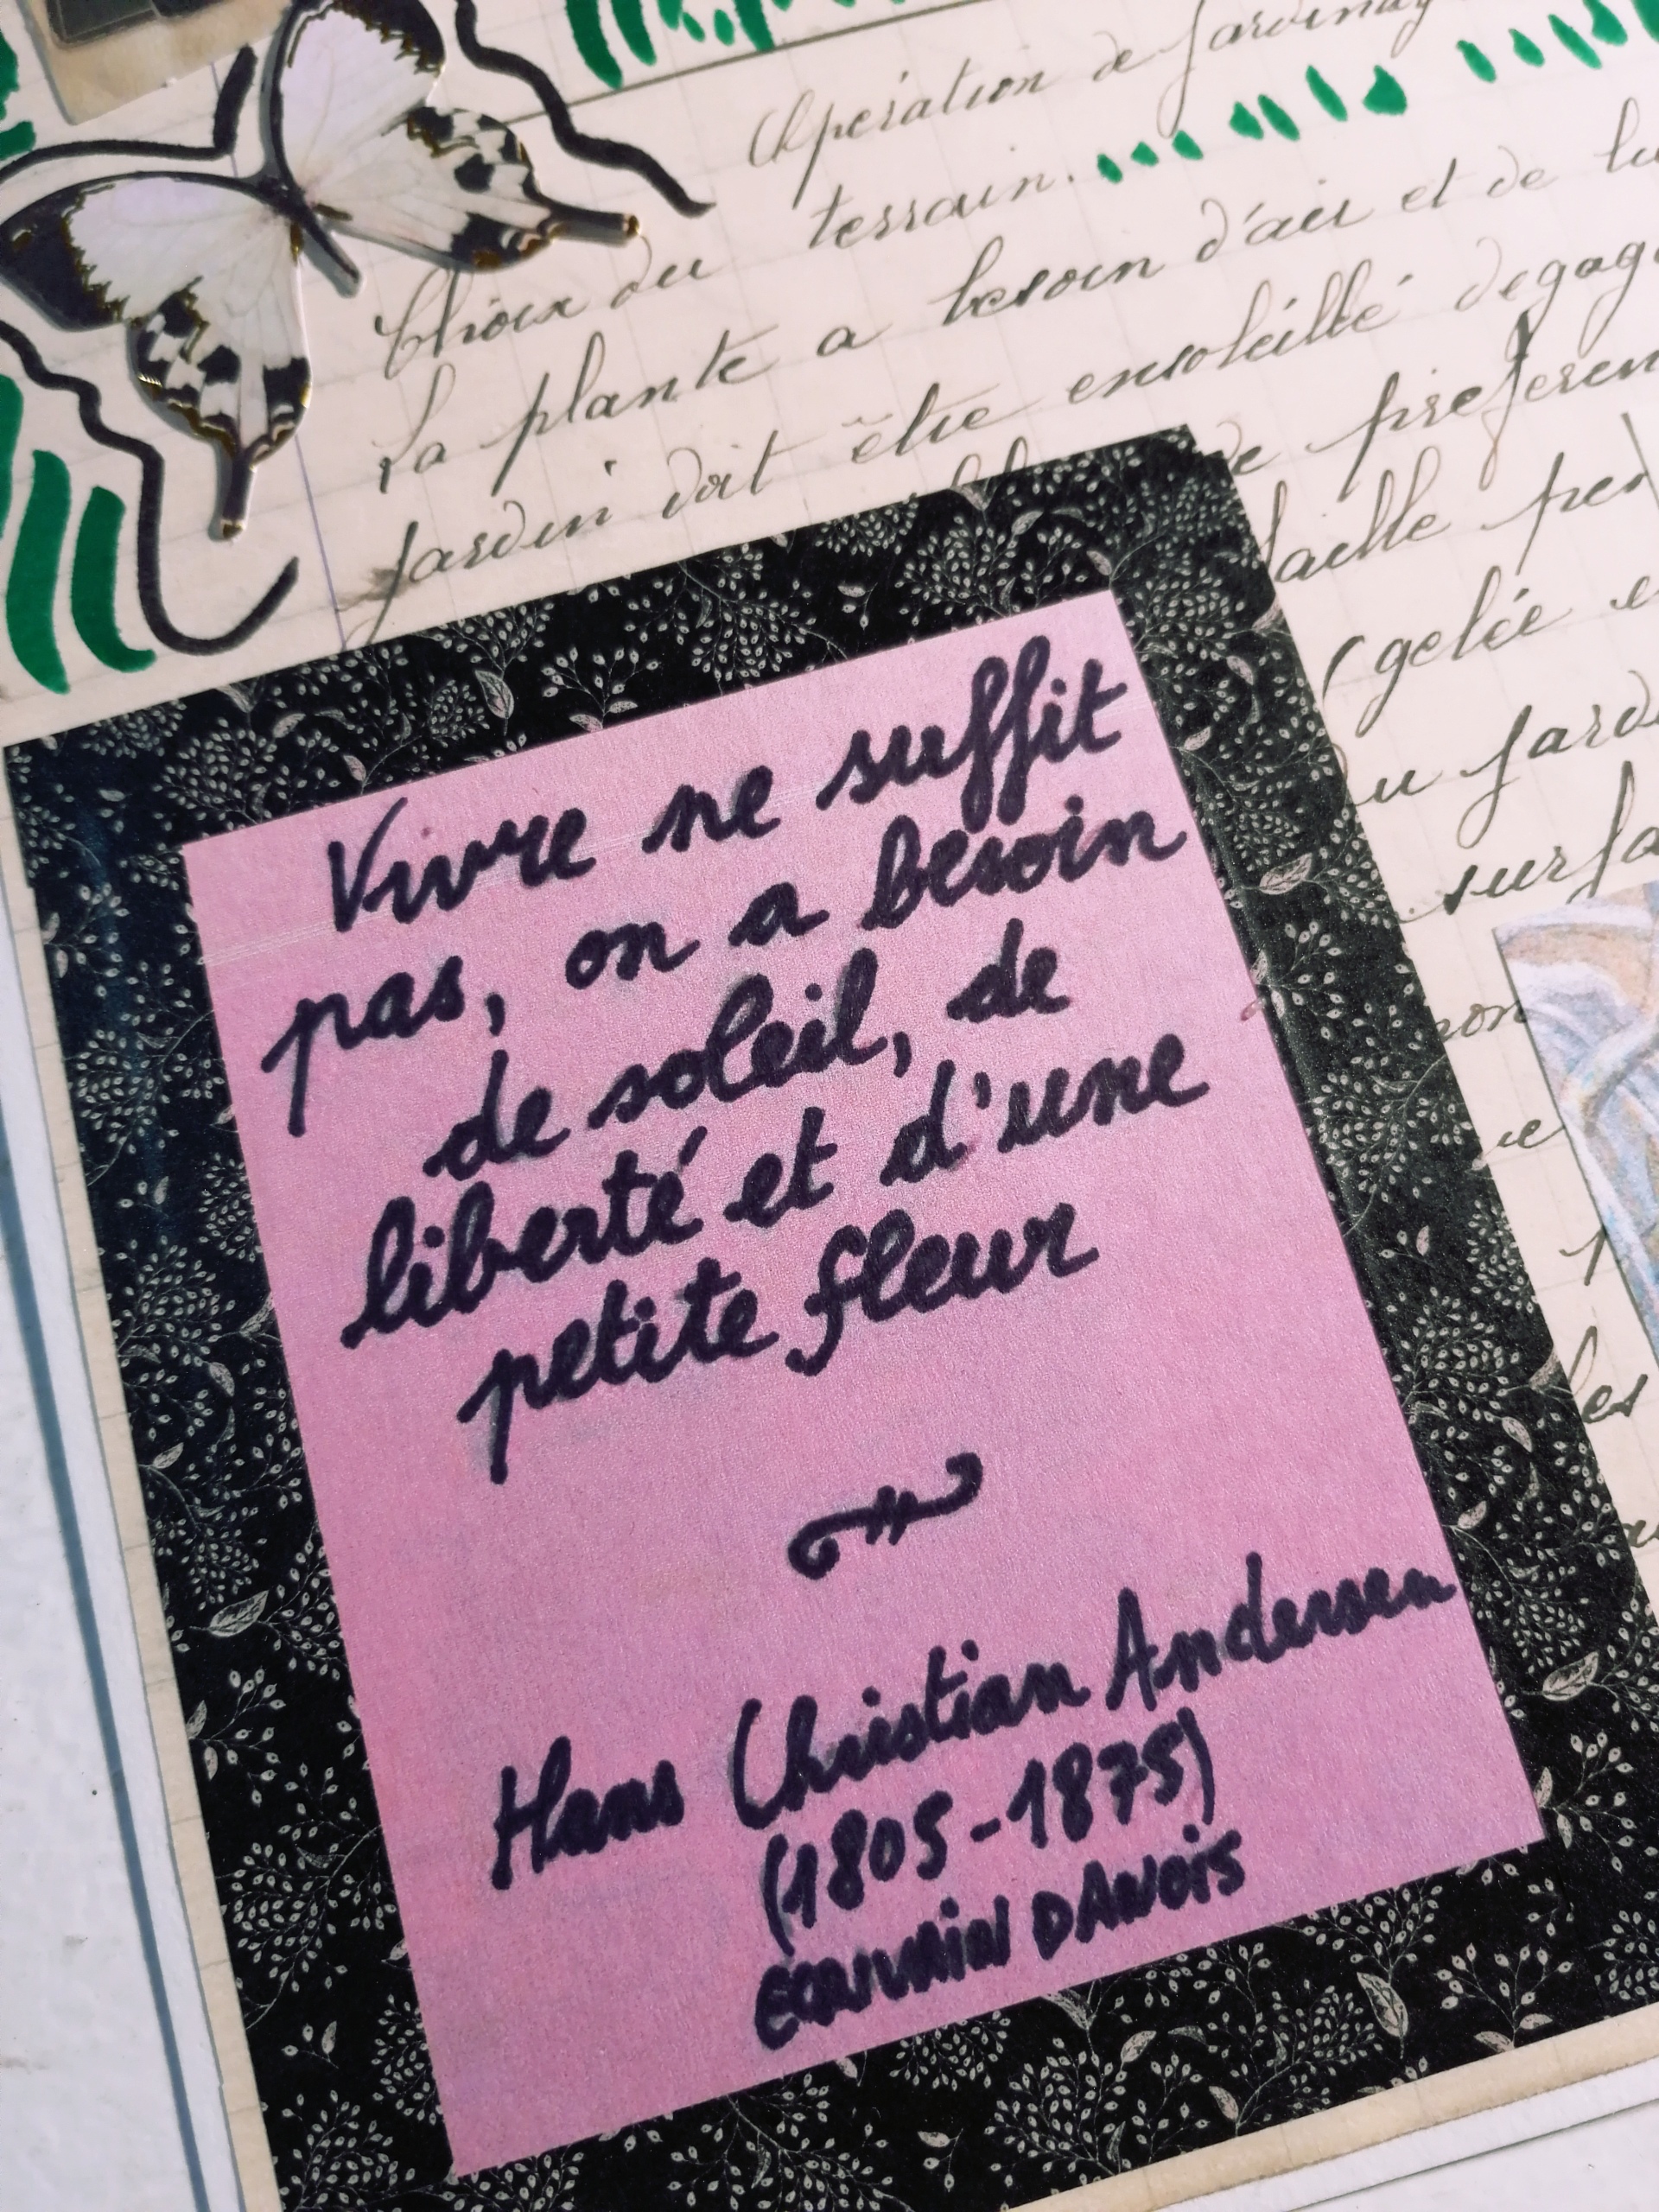 Opération de jardinag
Choix du terrain.
La plante a besoin d'air et de lu
jardin doit être ensoleillé dégagé
de préféren
faille per
(gelée e
u jard
surfa
non
ue
les
Vivre ne suffit
pas, on a besoin
de soleil, de
liberté et d'une
petite fleur
Hans Christian Andersen
(1805-1875)
ECRIVAIN DANOIS